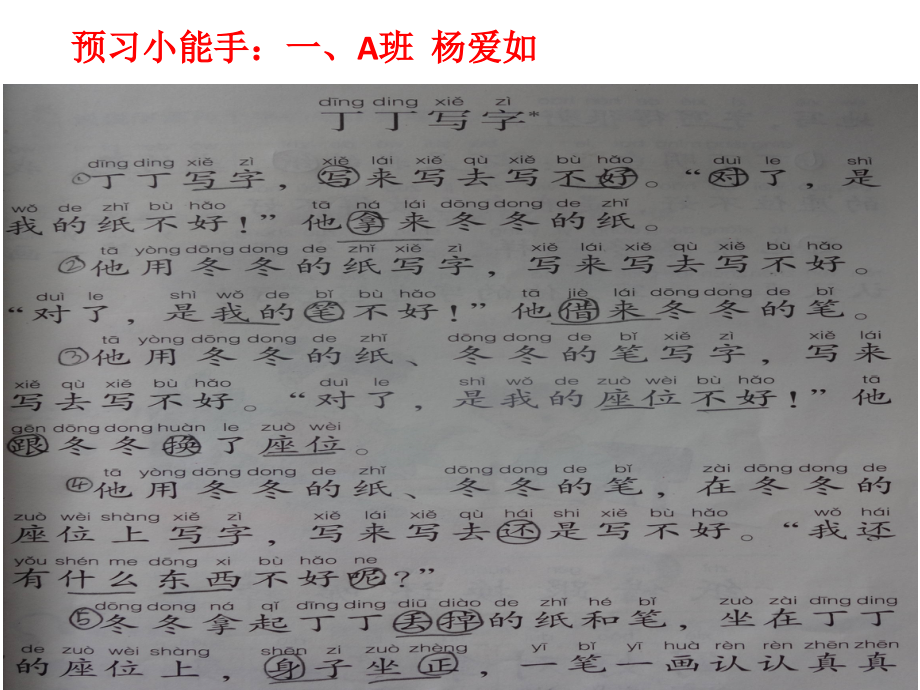 预习小能手：一、A班 杨爱如
dīng ding xiě zì
丁丁写字*
dīng ding xiě zì xiě lái xiě qù xiě bù hǎo duì le shì
①丁丁写字，写来写去写不好。“对了，是
wǒ de zhǐ bù hǎo tā ná lái dōng dong de zhǐ
我的纸不好！”他拿来冬冬的纸。
tā yòng dōng dong de zhǐ xiě zì xiě lái xiě qù xiě bù hǎo
②他用冬冬的纸写字，写来写去写不好。
duì le shì wǒ de bǐ bù hǎo tā jiè lái dōng dong de bǐ
“对了，是我的笔不好！”他借来冬冬的笔。
tā yòng dōng dong de zhǐ dōng dong de bǐ xiě zì xiě lái
③他用冬冬的纸、冬冬的笔写字，写来
xiě qù xiě bù hǎo duì le shì wǒ de zuò wèi bù hǎo tā
写去写不好。“对了，是我的座位不好！”他
gēn dōng dong huàn le zuò wèi
跟冬冬换了座位。
tā yòng dōng dong de zhǐ dōng dong de bǐ zài dōng dong de
④他用冬冬的纸、冬冬的笔，在冬冬的
zuò wèi shàng xiě zì xiě lái xiě qù hái shi xiě bù hǎo wǒ hái
座位上写字，写来写去还是写不好。“我还
yǒu shén me dōng xi bù hǎo ne
有什么东西不好呢？”
dōng dong ná qǐ dīng ding diū diào de zhǐ hé bǐ zuò zài dīng ding
⑤冬冬拿起丁丁丢掉的纸和笔，坐在丁丁
de zuò wèi shàng shēn zi zuò zhèng yī bǐ yī huà rèn rèn zhēn zhēn
的座位上，身子坐正，一笔一画认认真真